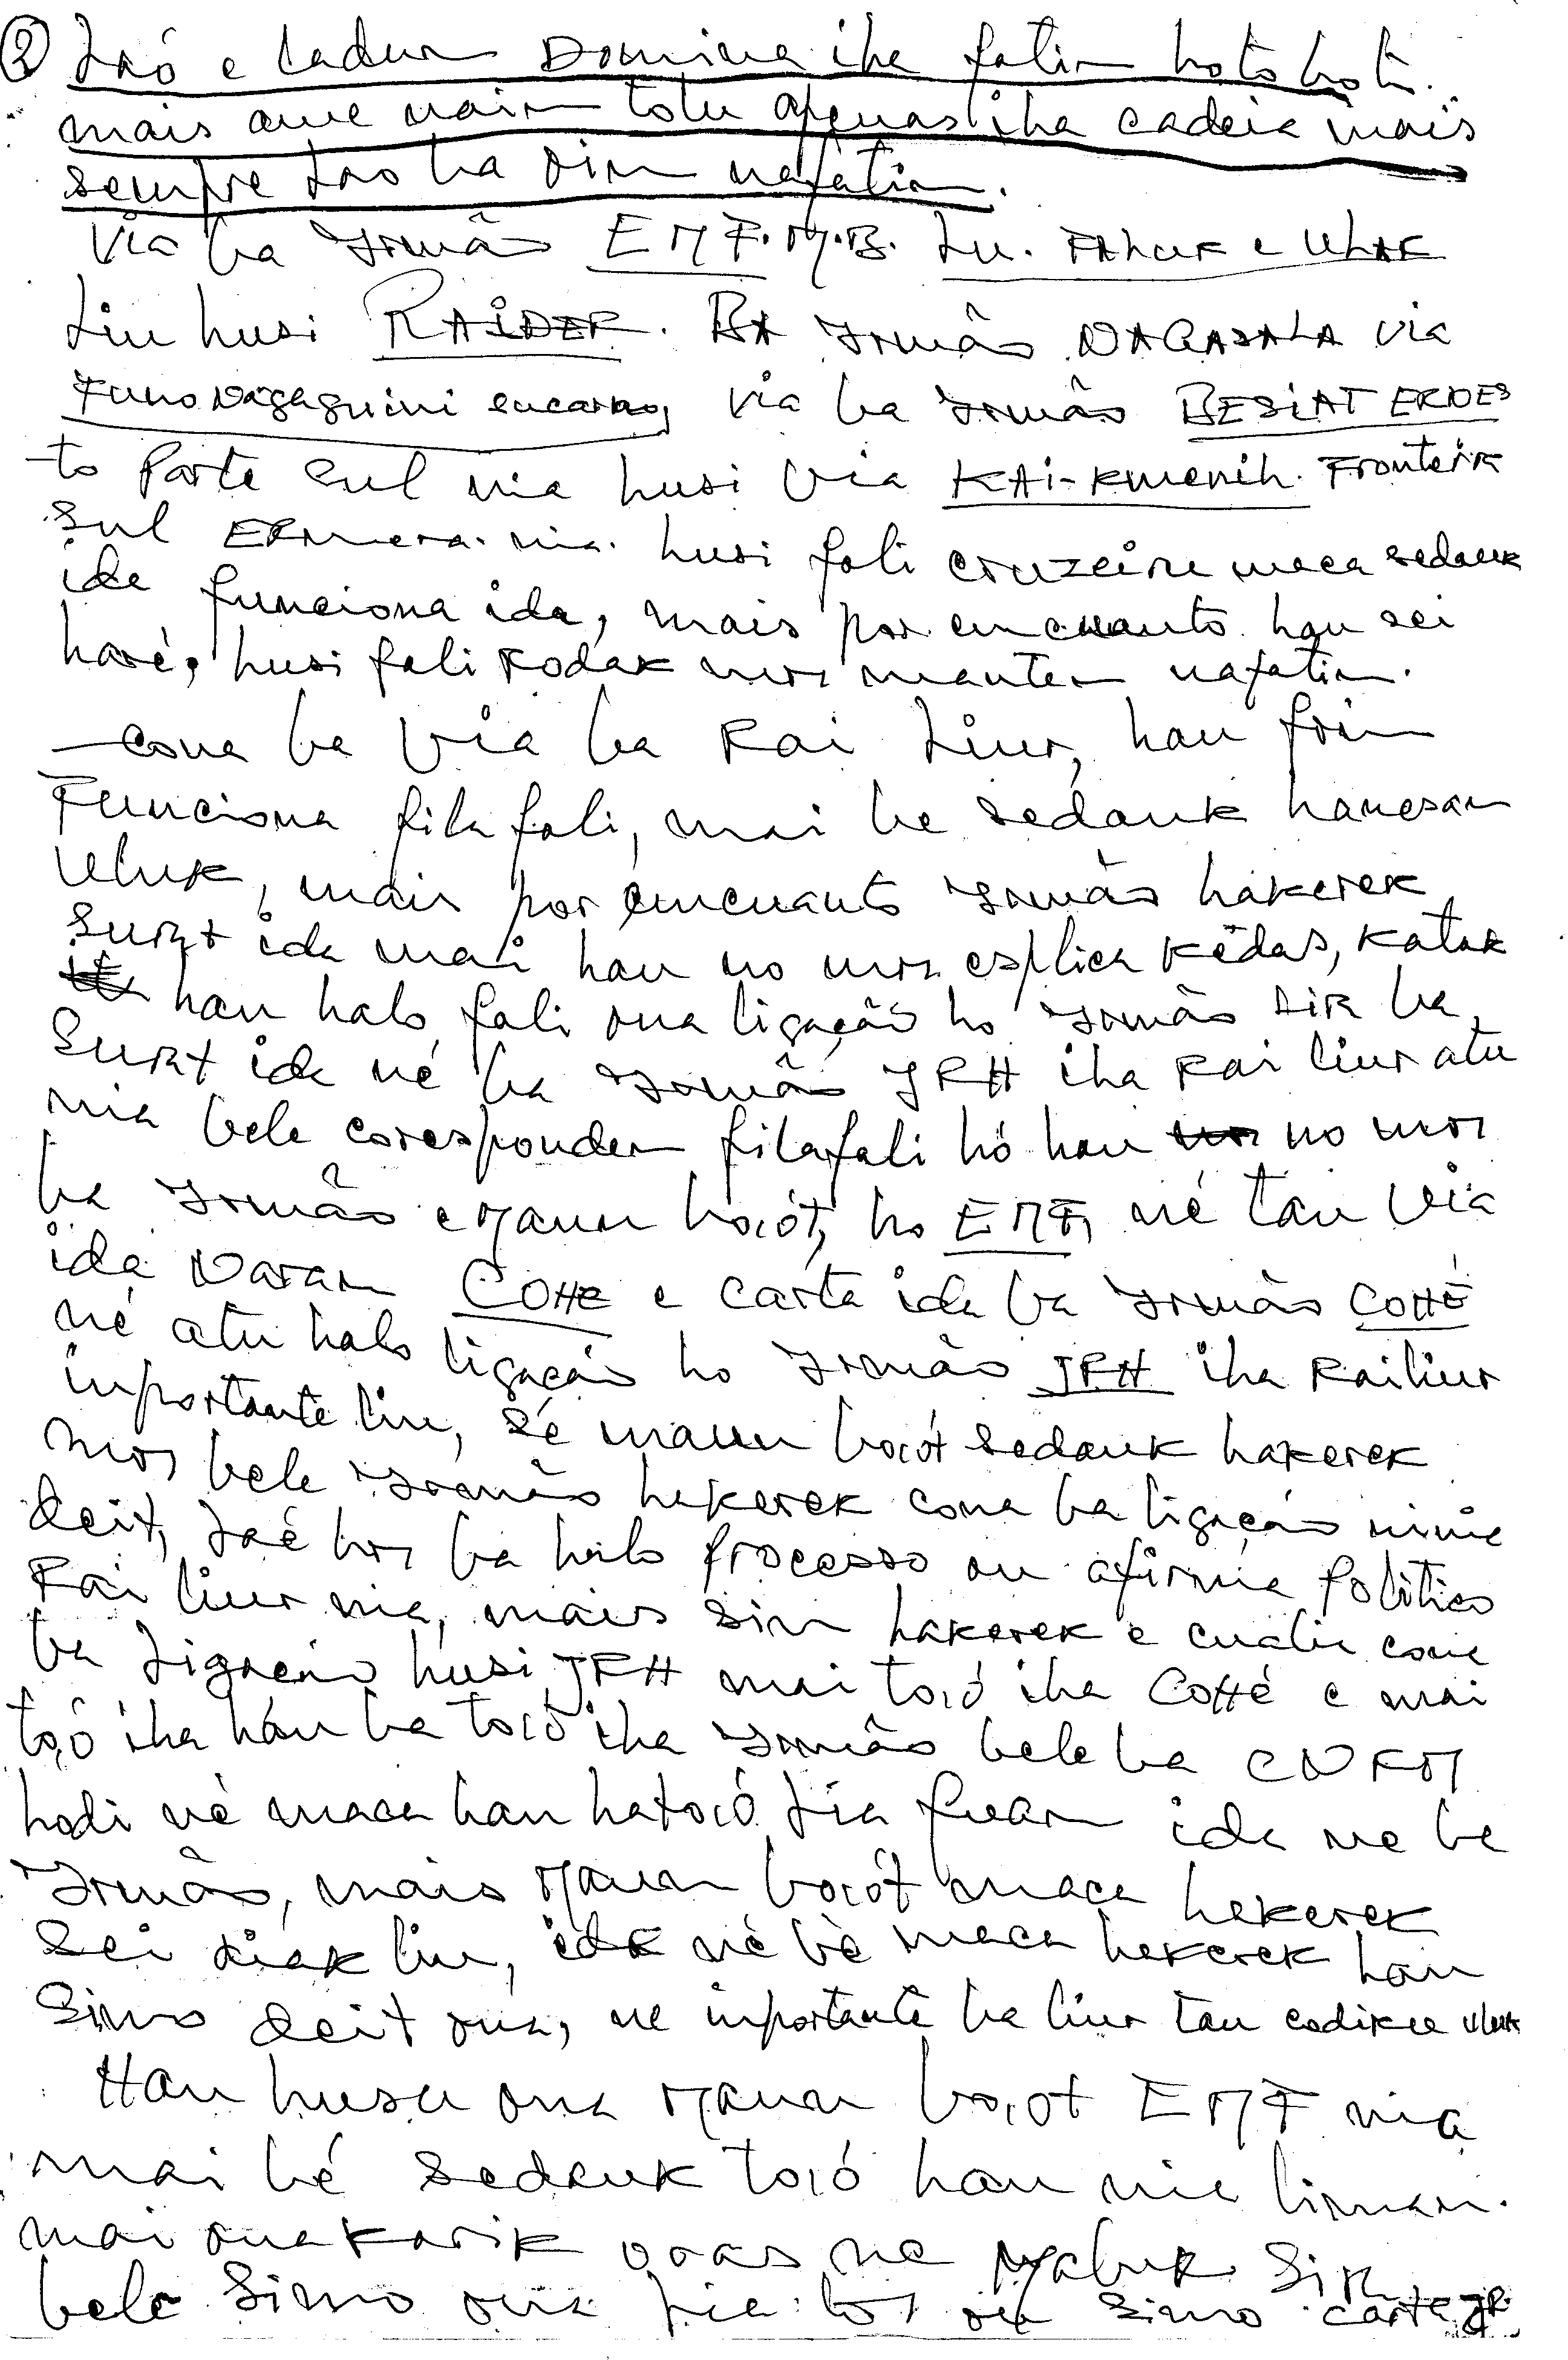 ② Laó e ladun Domina iha fatin hoto hoti.
mais que nain tolu apenas iha cadeia mais
sempre lao ba oin nafatin.
Via ba Irmão EMF.M.B. Lu. FALUR e ULAK
Liu husi RAIDER. BA Irmão DAGASALA via
Funo Dagaguini encarno, via ba Irmão BESIAT ERDES
to Parte Sul nia husi via KAI-Kmenih. Fronteira
Sul Ermera. nia. husi fali cruzeiru maca sedauk
ida funciona ida, mais por encuanto hau sei
haré, husi fali Kodak mos manten nafatin.
— Cona ba via ba Rai Liur, hau foin
Funciona fila fali, mai be sedauk hanesan
Uluk, mais por emcuanto Irmão hakerek
Surat ida mai hau no mos esplica kêdas, katak
hau halo fali ona ligação ho Irmão sira ba
Surat ida né ba Irmão JRH iha Rai liur atu
nia bele coresponden filafali hó hau no mos
ba Irmão e Maun boót, ho EMF, né tau via
ida Naran COHE e carta ida ba Irmão COHÉ
né atu halo ligação ho Irmão JRH iha Rai liur
inportante liu, sé maun boót sedauk hakerek
mos bele Irmão hakerek cona ba ligação ninia
deit, laé hos ba halo processo ou afirma politica
Rai liur nia, mais sin hakerek e cualia cona
ba Ligação husi JRH mai toió iha COHÉ e mai
toó iha hau ba toió iha Irmão bele ba CNRM
hodi né maca hau hatoió Lia fuan ida ne be
Irmão, mais Maun boiót maca hakerek
Sei diak liu, ida né bé maca hakerek hau
Simo deit ona, ne inportante ba liur tau codiku uluk
Hau husu ona Maun boiot EMF nia
mai bé sedauk toió hau nia liman.
mai ona karik oras ne Mabuk Sira
bele Simo ona Lia los ou simo carta JR.